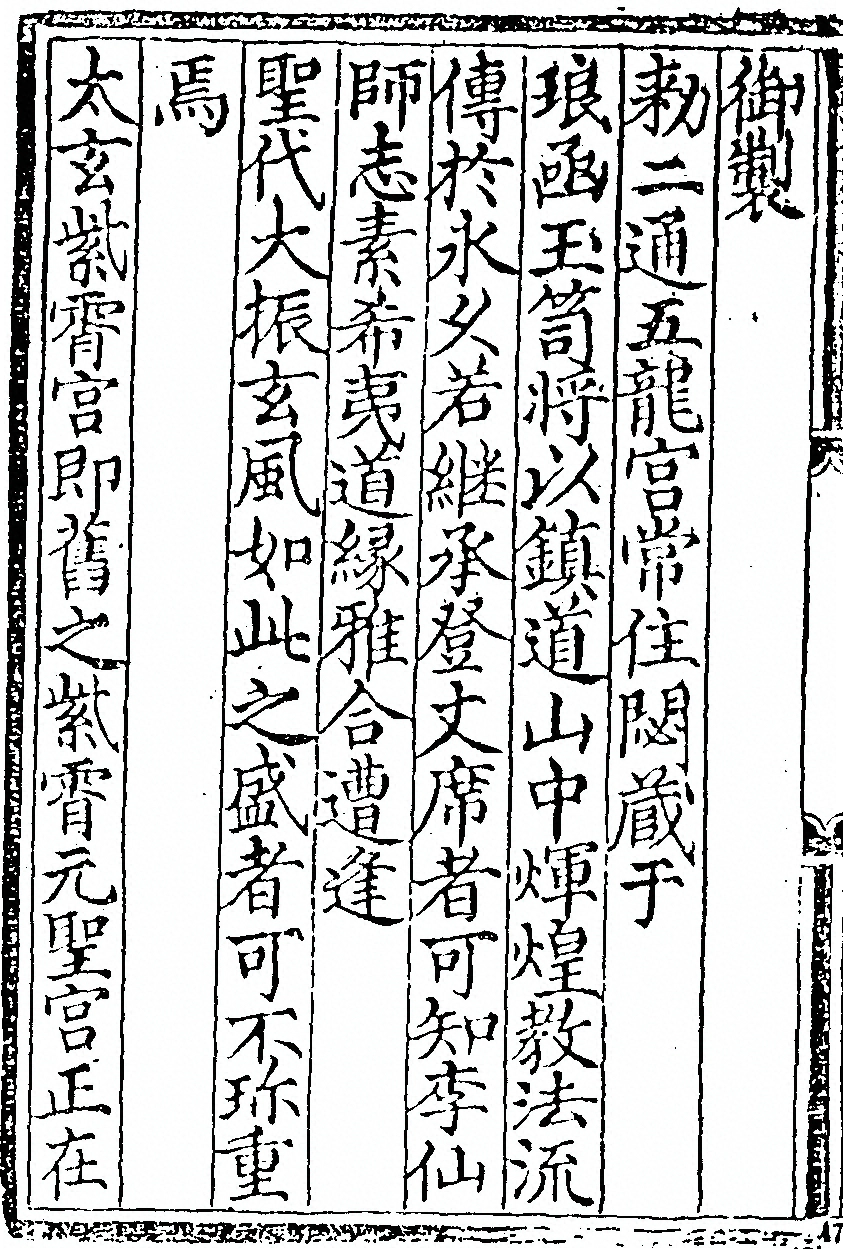 御製
勑二通五龍宮常住閟蔵于
琅函玉笥將以鎮道山中煇煌教法流
傳於永久若継承登丈席者可知李仙
師志素希夷道緣雅合遭逢
聖代大振玄風如此之盛者可不珎重
焉
太玄紫霄宮即舊之紫霄元聖宮正在